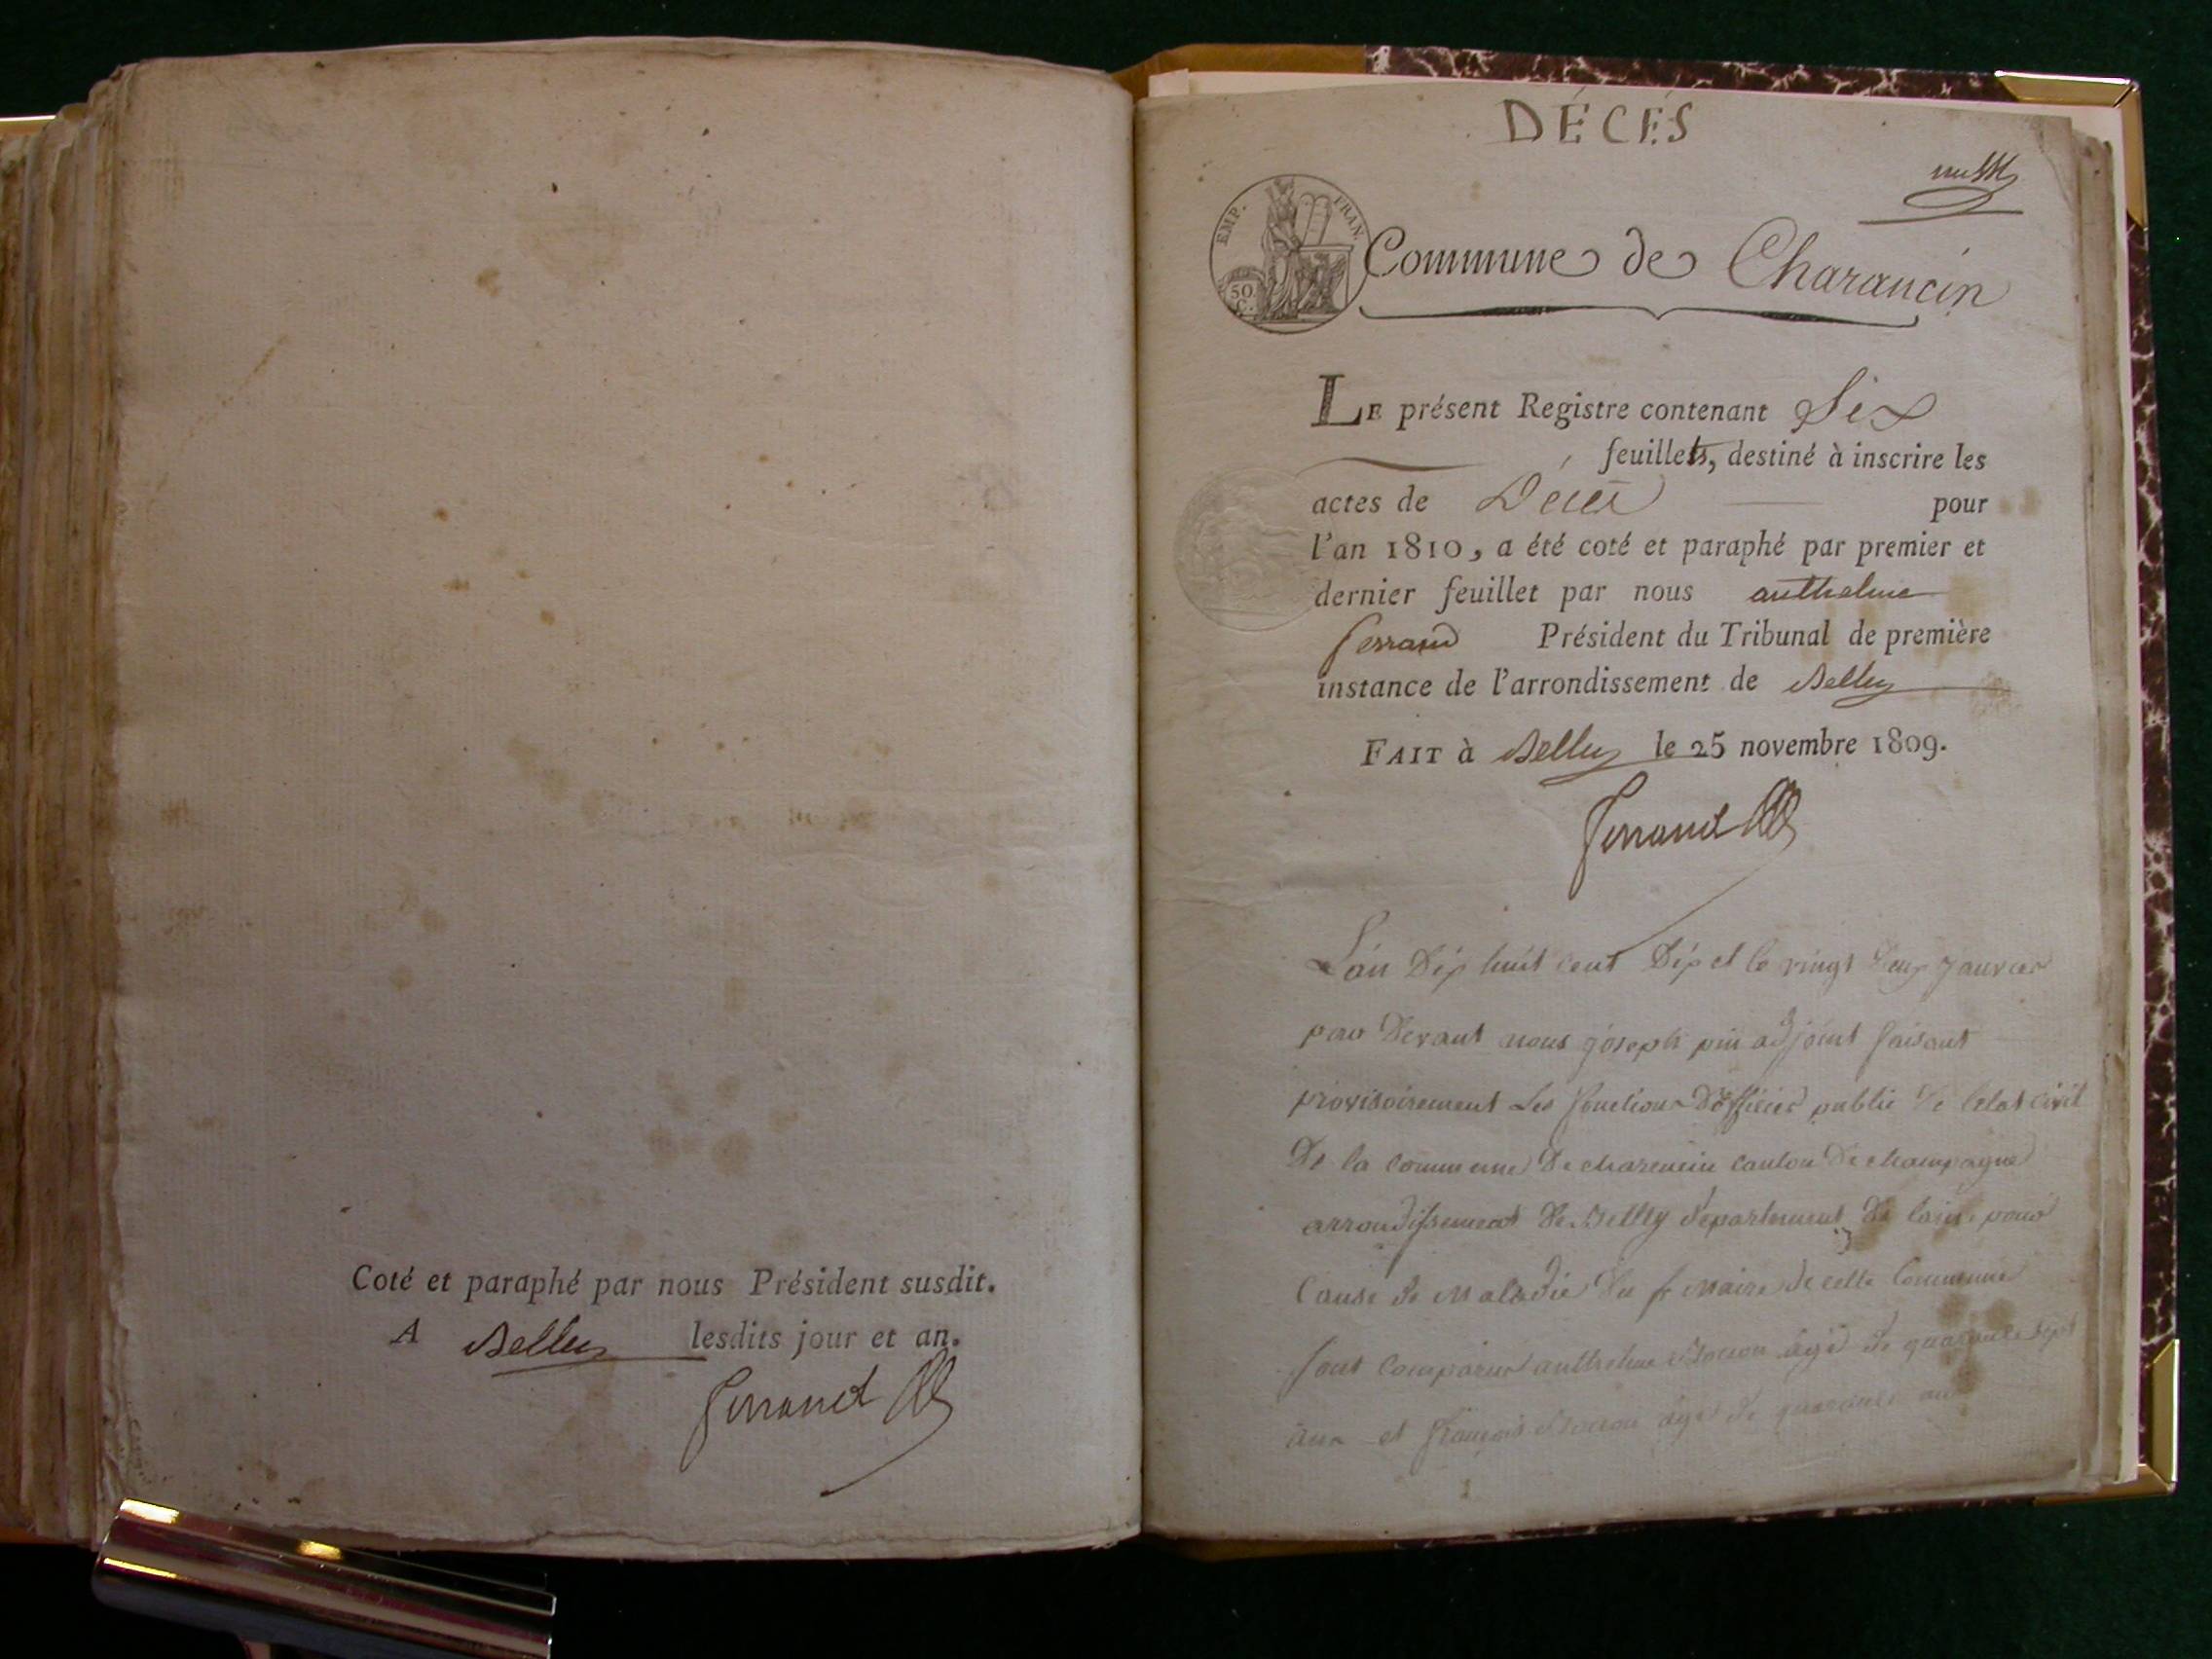 Coté et paraphé par nous Président susdit.
A Belley lesdits jour et an.
Ferrand
DÉCÉS
EMP. FRAN.
50 C.
Commune de Charancin
LE présent Registre contenant Six
feuillets, destiné à inscrire les
actes de Décès pour
l'an 1810, a été coté et paraphé par premier et
dernier feuillet par nous anthelme
ferrand Président du Tribunal de première
instance de l'arrondissement de Belley
FAIT à Belley le 25 novembre 1809.
Ferrand
L'an Dix huit cent Dix et le vingt Deux Janvier
par Devant nous joseph pin adjoint faisant
provisoirement Les fonctions D'officier public De letat civil
De la commune De charencin canton De champagne
arrondissement De Belley département De lain pour
Cause de Maladie Du sr Maire de cette Commune
sont comparus anthelme agé de quarante sept
ans et françois agé de quarante ans